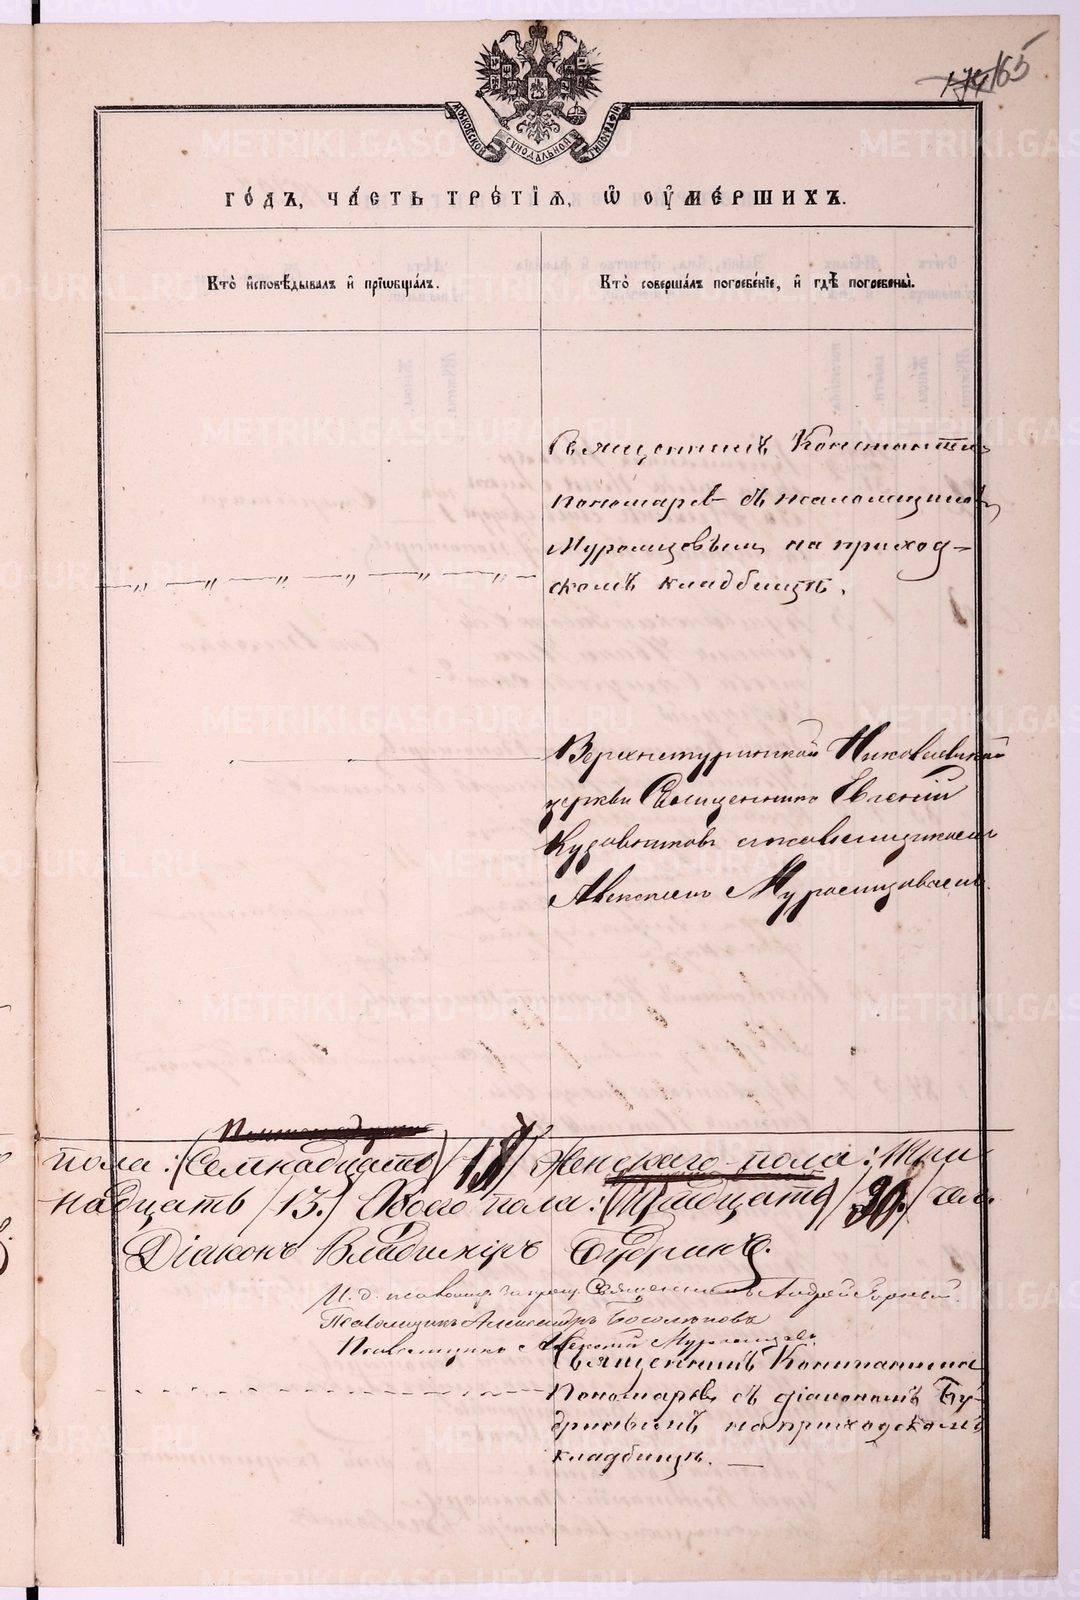 174 165
МОСКОВСКОЙ СѴНОДАЛЬНОЙ ТИПОГРАФІИ
ГО́ДЪ, ЧА́СТЬ ТРЕ́ТІѦ, Ѡ҆ ОУ҆МЕ́РШИХЪ.
Кто̀ и҆сповѣ́дывалъ и҆ прїѡбща́лъ.
Кто̀ соверша́лъ погребе́нїе, и҆ гдѣ̀ погребены̀.
Священникъ Константин
Пономаревъ съ псаломщиком
Муромцовымъ на приход-
скомъ кладбищѣ.
Верхнетуринской Николаевской
церкви Священникъ Евгеній
Кудовниковъ с псаломщикомъ
Алексѣемъ Муромцовымъ.
пола: (Семнадцать) /17/ Женскаго пола: Три-
надцать /13.) Обоего пола: (Тридцать) /30./
Діаконъ Владиміръ Будринъ.
И. д. псаломщ. Священникъ Андрей
Псаломщикъ Александръ Богомоловъ
Псаломщикъ Алексѣй Муромцовъ
Священникъ Константинъ
Пономаревъ съ діакономъ Бу-
дринымъ на приходскомъ
кладбищѣ. —